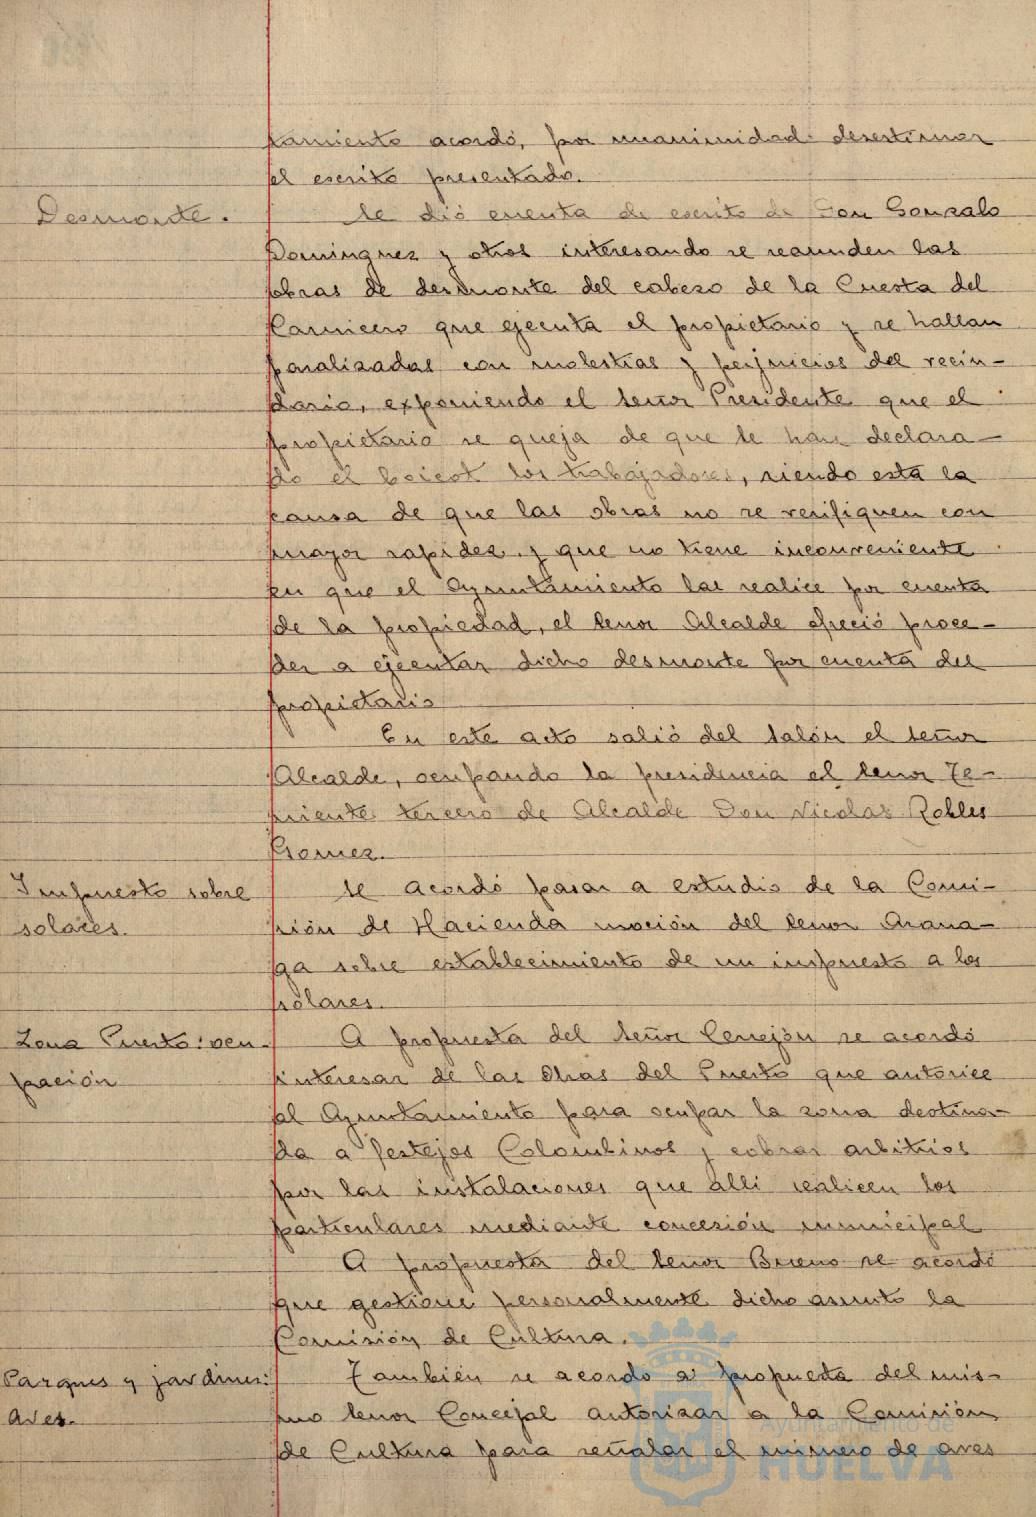 tamiento acordó, por unanimidad desestimar
el escrito presentado.
Desmonte.
Se dió cuenta de escrito de Don Gonzalo
Dominguez y otros interesando se reanuden las
obras de desmonte del cabezo de la Cuesta del
Carnicero que ejecuta el propietario y se hallan
paralizadas con molestias y perjuicios del vecin-
dario, exponiendo el señor Presidente que el
propietario se queja de que le han declara-
do el boicot los trabajadores, siendo esta la
causa de que las obras no se verifiquen con
mayor rapidez y que no tiene inconveniente
en que el Ayuntamiento las realice por cuenta
de la propiedad, el señor Alcalde ofreció proce-
der a ejecutar dicho desmonte por cuenta del
propietario
En este acto salió del salón el señor
Alcalde, ocupando la presidencia el señor Te-
niente tercero de Alcalde Don Nicolas Robles
Gomez.
Impuesto sobre
solares.
Se acordó pasar a estudio de la Comi-
sión de Hacienda moción del señor Arana-
ga sobre establecimiento de un impuesto a los
solares.
Zona Puerto: ocu-
pación
A propuesta del señor Cerrejón se acordó
interesar de las Obras del Puerto que autorice
al Ayuntamiento para ocupar la zona destina-
da a festejos Colombinos y cobrar arbitrios
por las instalaciones que alli realicen los
particulares mediante concesión municipal
A propuesta del señor Bueno se acordó
que gestione personalmente dicho asunto la
Comisión de Cultura.
Parques y jardines:
Aves.
También se acordo a propuesta del mis-
mo señor Concejal autorizar a la Comisión
de Cultura para señalar el número de aves
Ayuntamiento de
HUELVA